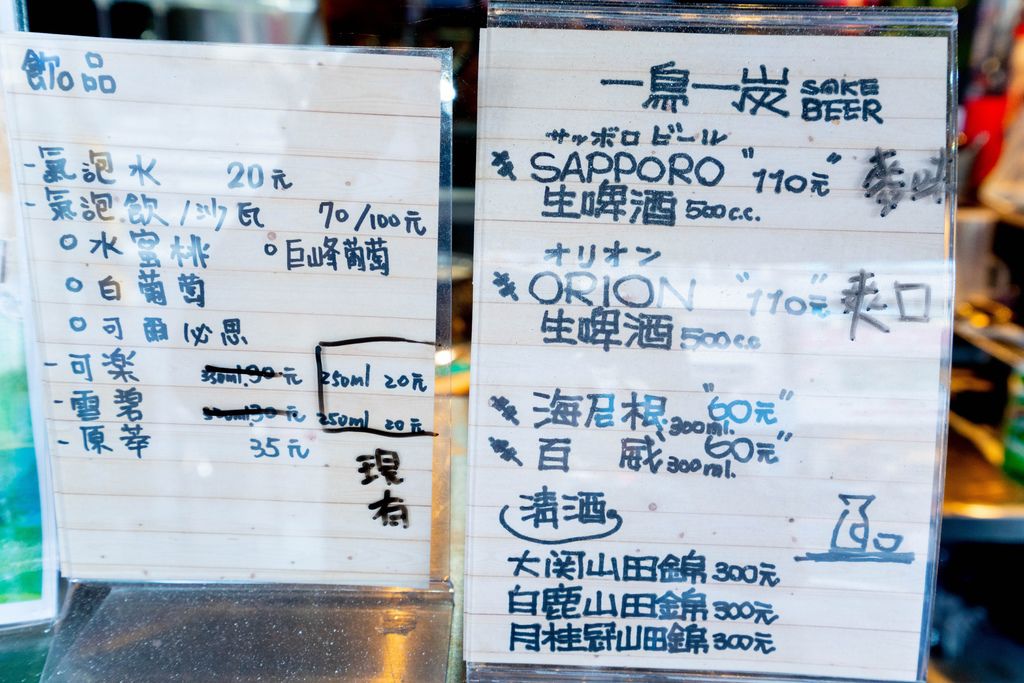 飲品
-氣泡水 20元
-氣泡飲/沙瓦 70/100元
○水蜜桃 ○巨峰葡萄
○白葡萄
○可爾必思
-可楽 350ml.30元 250ml 20元
-雪碧 350ml.30元 250ml 20元
-原萃 35元
現有
一鳥一炭 SAKE BEER
サッポロ ビール
SAPPORO "110元"
生啤酒 500c.c.
オリオン
ORION "110元" 爽口
生啤酒 500cc
海尼根 300ml. "60元"
百威 300ml. "60元"
清酒
大関山田錦 300元
白鹿山田錦 300元
月桂冠山田錦 300元